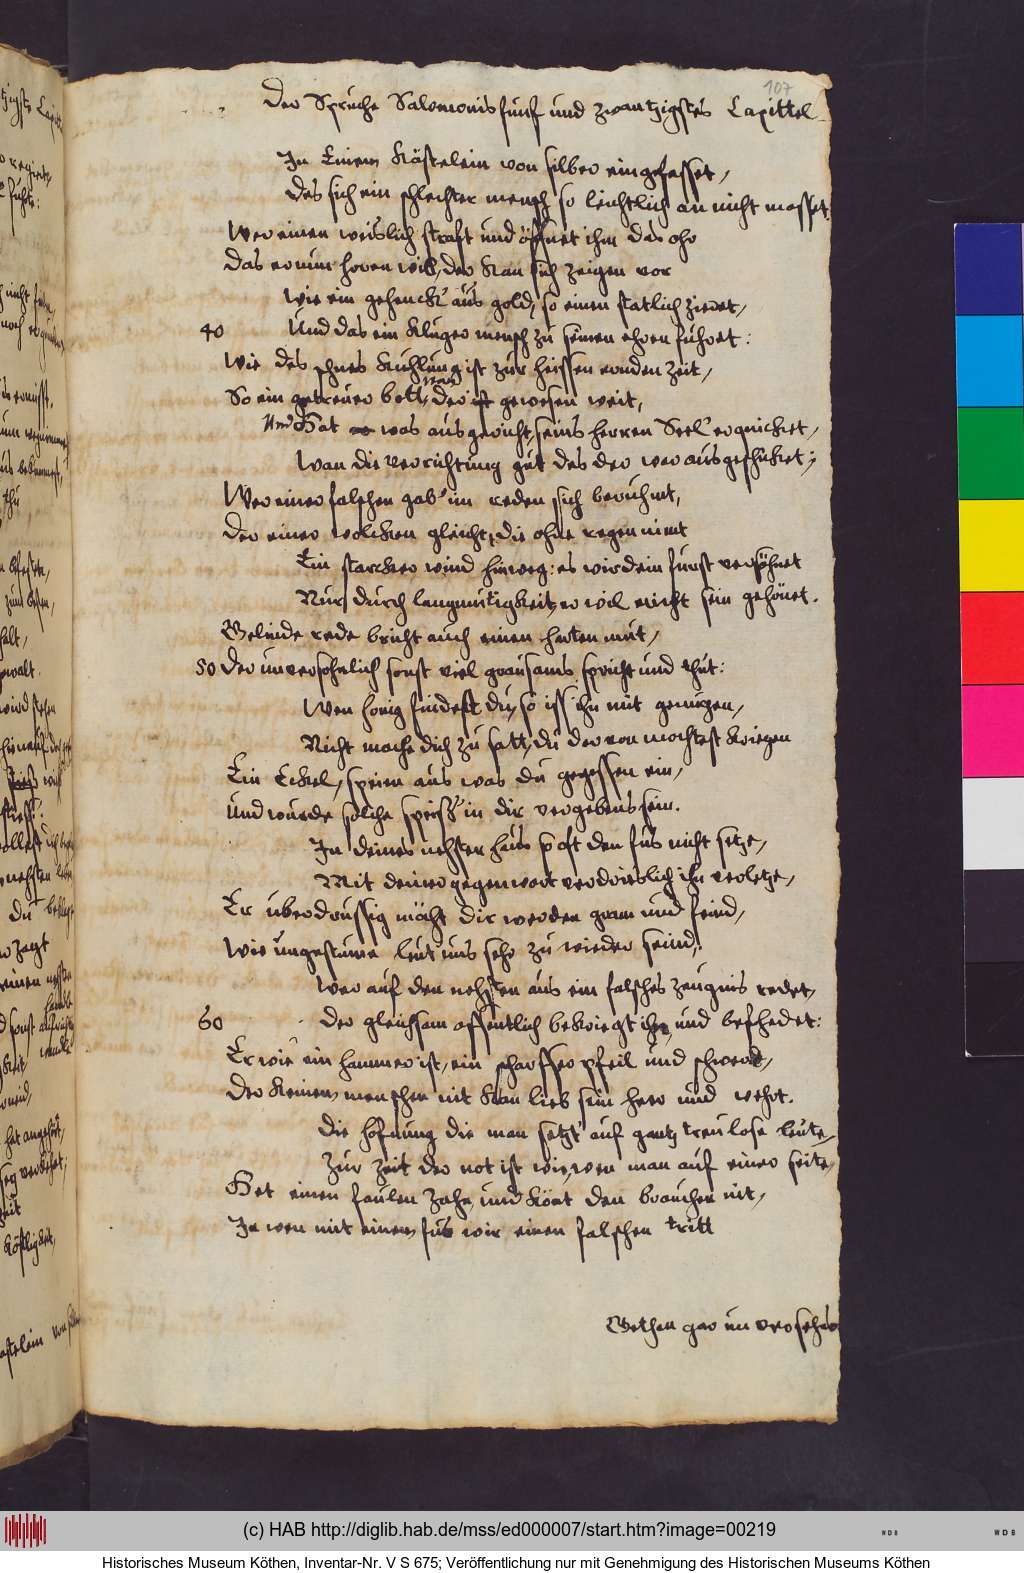 107
Der Spruche Salomonis funf und zwantzigstes Capittel.
In Einem Kästelein von silber eingefasset,
Des sich ein schlechter mensch so leichtlich an nicht masset.
Wer einen weislich straft und öffnet ihm das ohr
Das er nun horen wil, der kan sich zeigen vor
Wie ein gehenck aus gold, so einen statlich zieret,
40 Und das ein kluger mensch zu seinen ehren fuhret:
Wie des schnees kuhlung ist zur heissen ernden zeit,
So ein getreuer bott, der ist gewesen weit,
war
Und Hat was ausgericht, seins herren Seel' erquicket,
Wan die verrichtung gut des der wer ausgeschicket;
Wer einer falschen gab' im reden sich beruhmt,
Der einer wolcken gleicht, die ohne regen nimt
Ein starcker wind hinweg: es wird ein furst versöhnet
Nur durch langmutigkeit, er wil nicht sein gehönet.
Gelinde rede bricht auch einen harten mut,
50 Der unversohnlich sonst viel grausams spricht und thut:
Wen honig findest du, so iss ihn mit genugen,
Nicht mache dich zu satt, du darvon mochtest kriegen
Ein Eckel, speien aus was du gegessen ein,
Und wurde solche speiss' in dir vergebens sein.
In deines nehsten haus so oft den fus nicht setze,
Mit deiner gegenwart verdrieslich ihn verletze,
Er uberdrussig möcht dir werden gram und feind,
Wie ungestume leut uns sehr zu wieder seind,
Wer auf den nehsten aus ein falsches zeugnis redet,
60 Der gleichsam offentlich bekriegt ihn und befhedet:
Er wie ein hammer ist, ein scharffer pfeil und schwerd,
Der keinen menschen nit kan lieb sein hier und wehrt.
Die hofnung die man setzt auf gantz treulose leute,
Zur zeit der not ist wie, wen man auf einer seite,
Het einen faulen zahn, und könt den brauchen nit,
Ja wen mit einem fus wir einen falschen tritt
Gethan gar unversehns
(c) HAB http://diglib.hab.de/mss/ed000007/start.htm?image=00219
WDB
WDB
Historisches Museum Köthen, Inventar-Nr. V S 675; Veröffentlichung nur mit Genehmigung des Historischen Museums Köthen